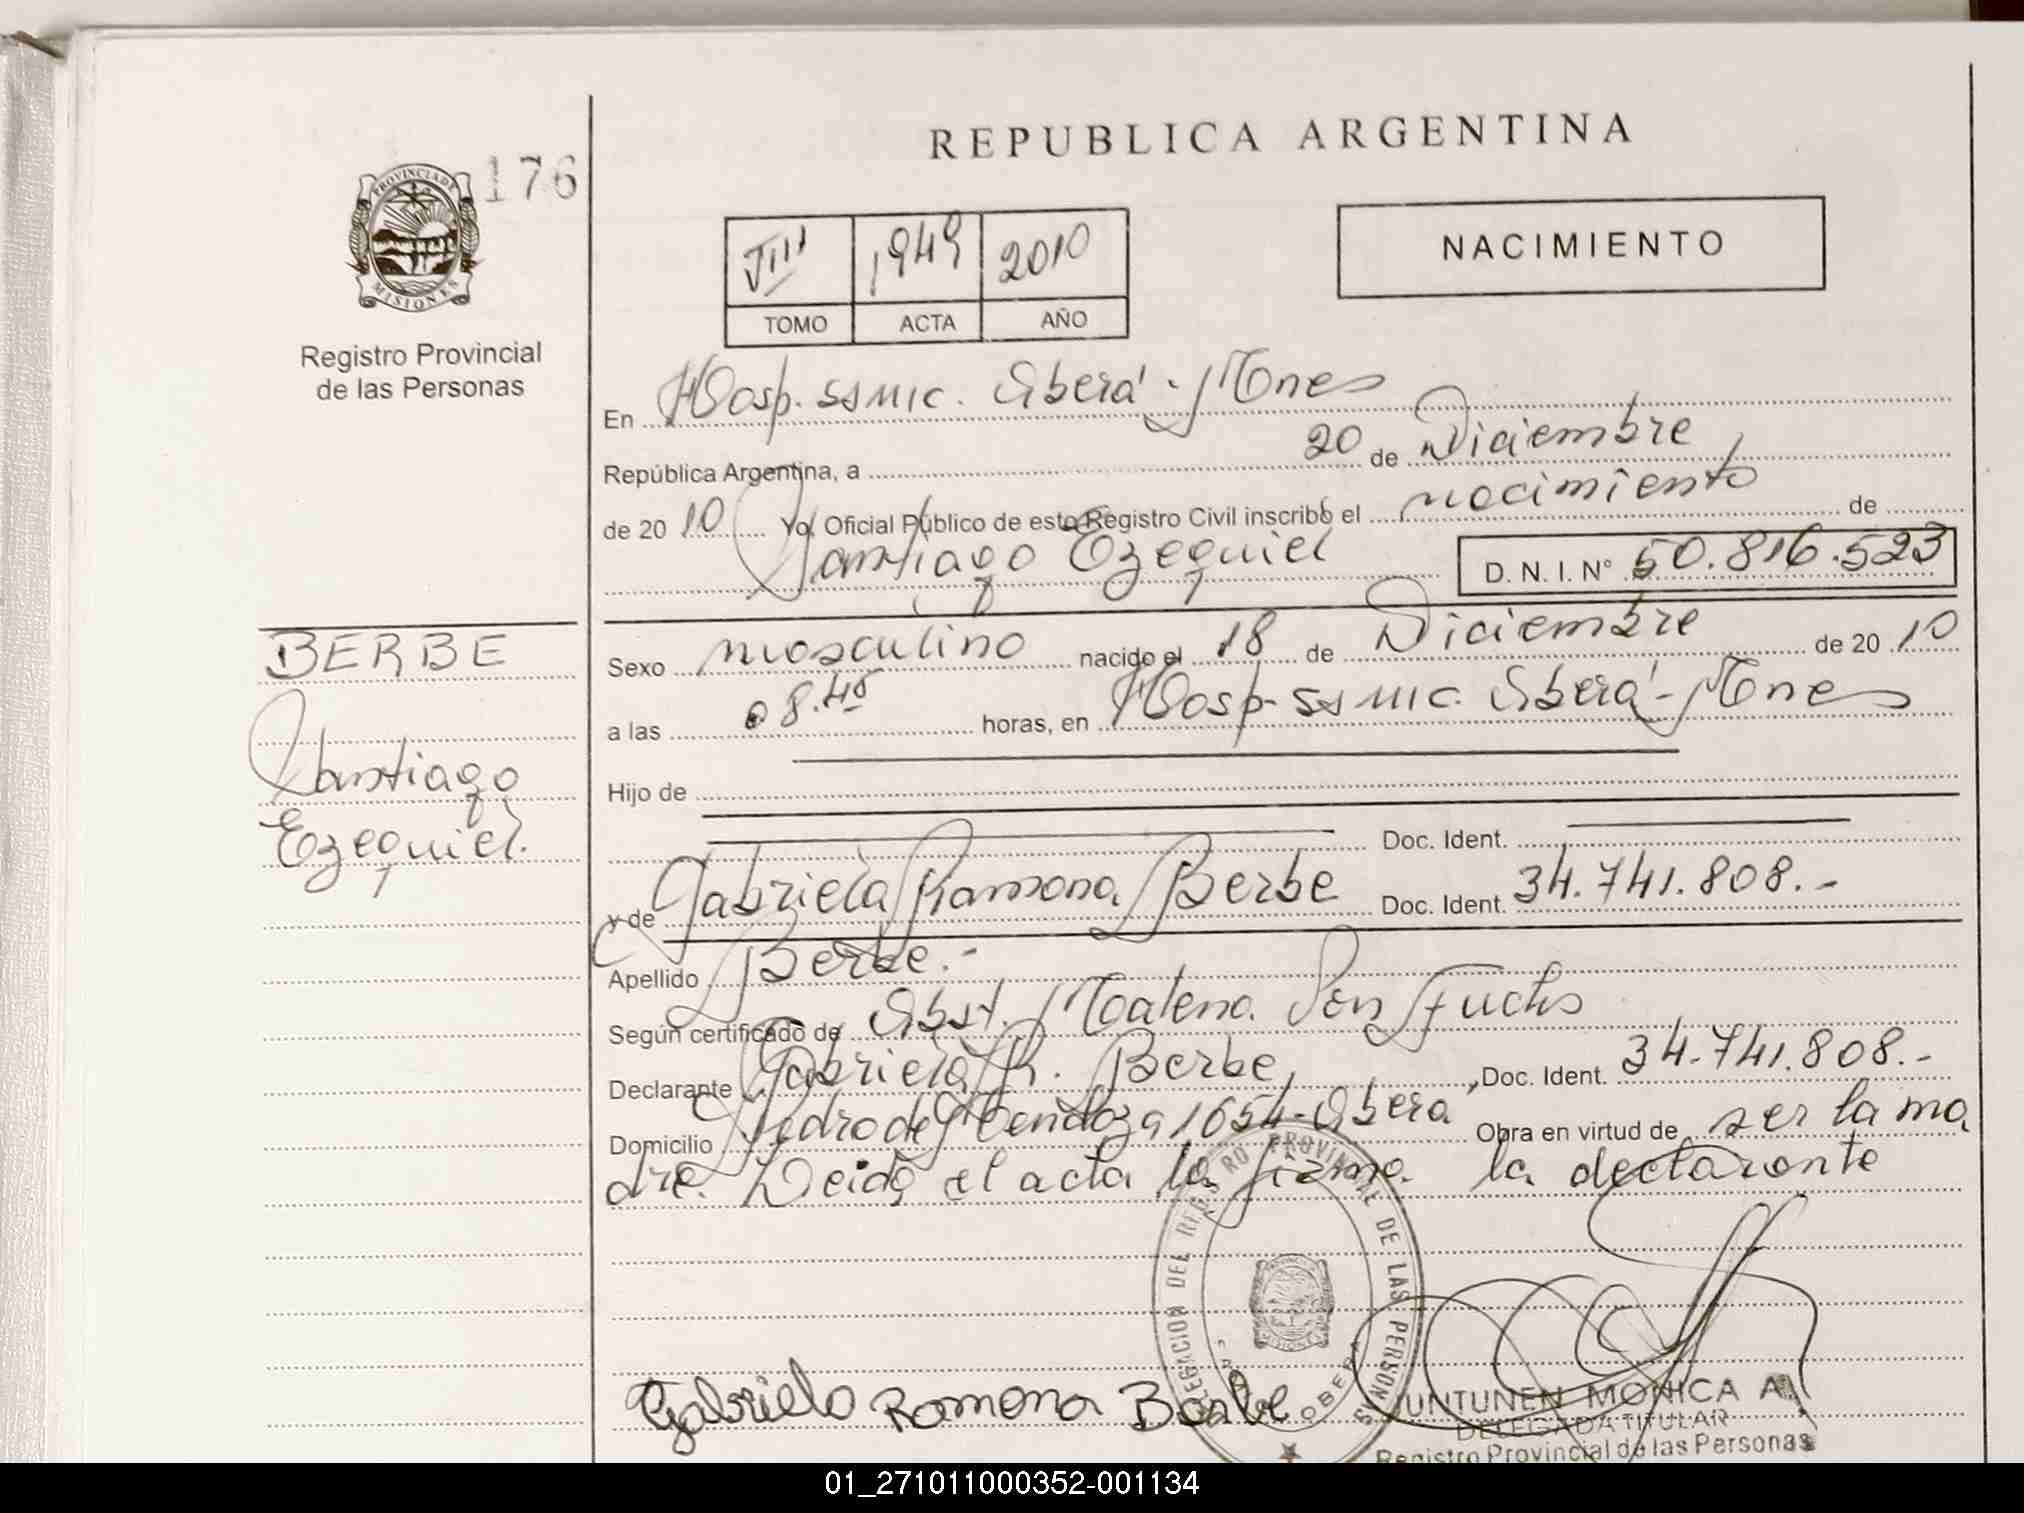 REPUBLICA ARGENTINA
176
PROVINCIA DE
MISIONES
Registro Provincial
de las Personas
VIII 1949 2010
TOMO ACTA AÑO
NACIMIENTO
En Hosp. SSMIC. Oberá - Mnes
República Argentina, a 20 de Diciembre
de 20 10 Yo, Oficial Público de este Registro Civil inscribo el nacimiento de
Santiago Ezequiel D.N.I. Nº 50.816.523
BERBE
Santiago
Ezequiel.
Sexo masculino nacido el 18 de Diciembre de 20 10
a las 08.45 horas, en Hosp. SSMIC. Oberá - Mnes
Hijo de
Doc. Ident.
y de Gabriela Ramona Berbe Doc. Ident. 34.741.808.-
Apellido Berbe.-
Según certificado de Obst. Malena Fuchs
Declarante Gabriela R. Berbe, Doc. Ident. 34.741.808.-
Domicilio Pedro de Mendoza 1654-Oberá Obra en virtud de ser la ma
dre. Leída el acta la firma la declarante
DELEGACION DEL REGISTRO PROVINCIAL DE LAS PERSONAS
OBERA
Gabriela Ramona Berbe
JUNTUNEN MONICA A.
DELEGADA TITULAR
Registro Provincial de las Personas
01_271011000352-001134